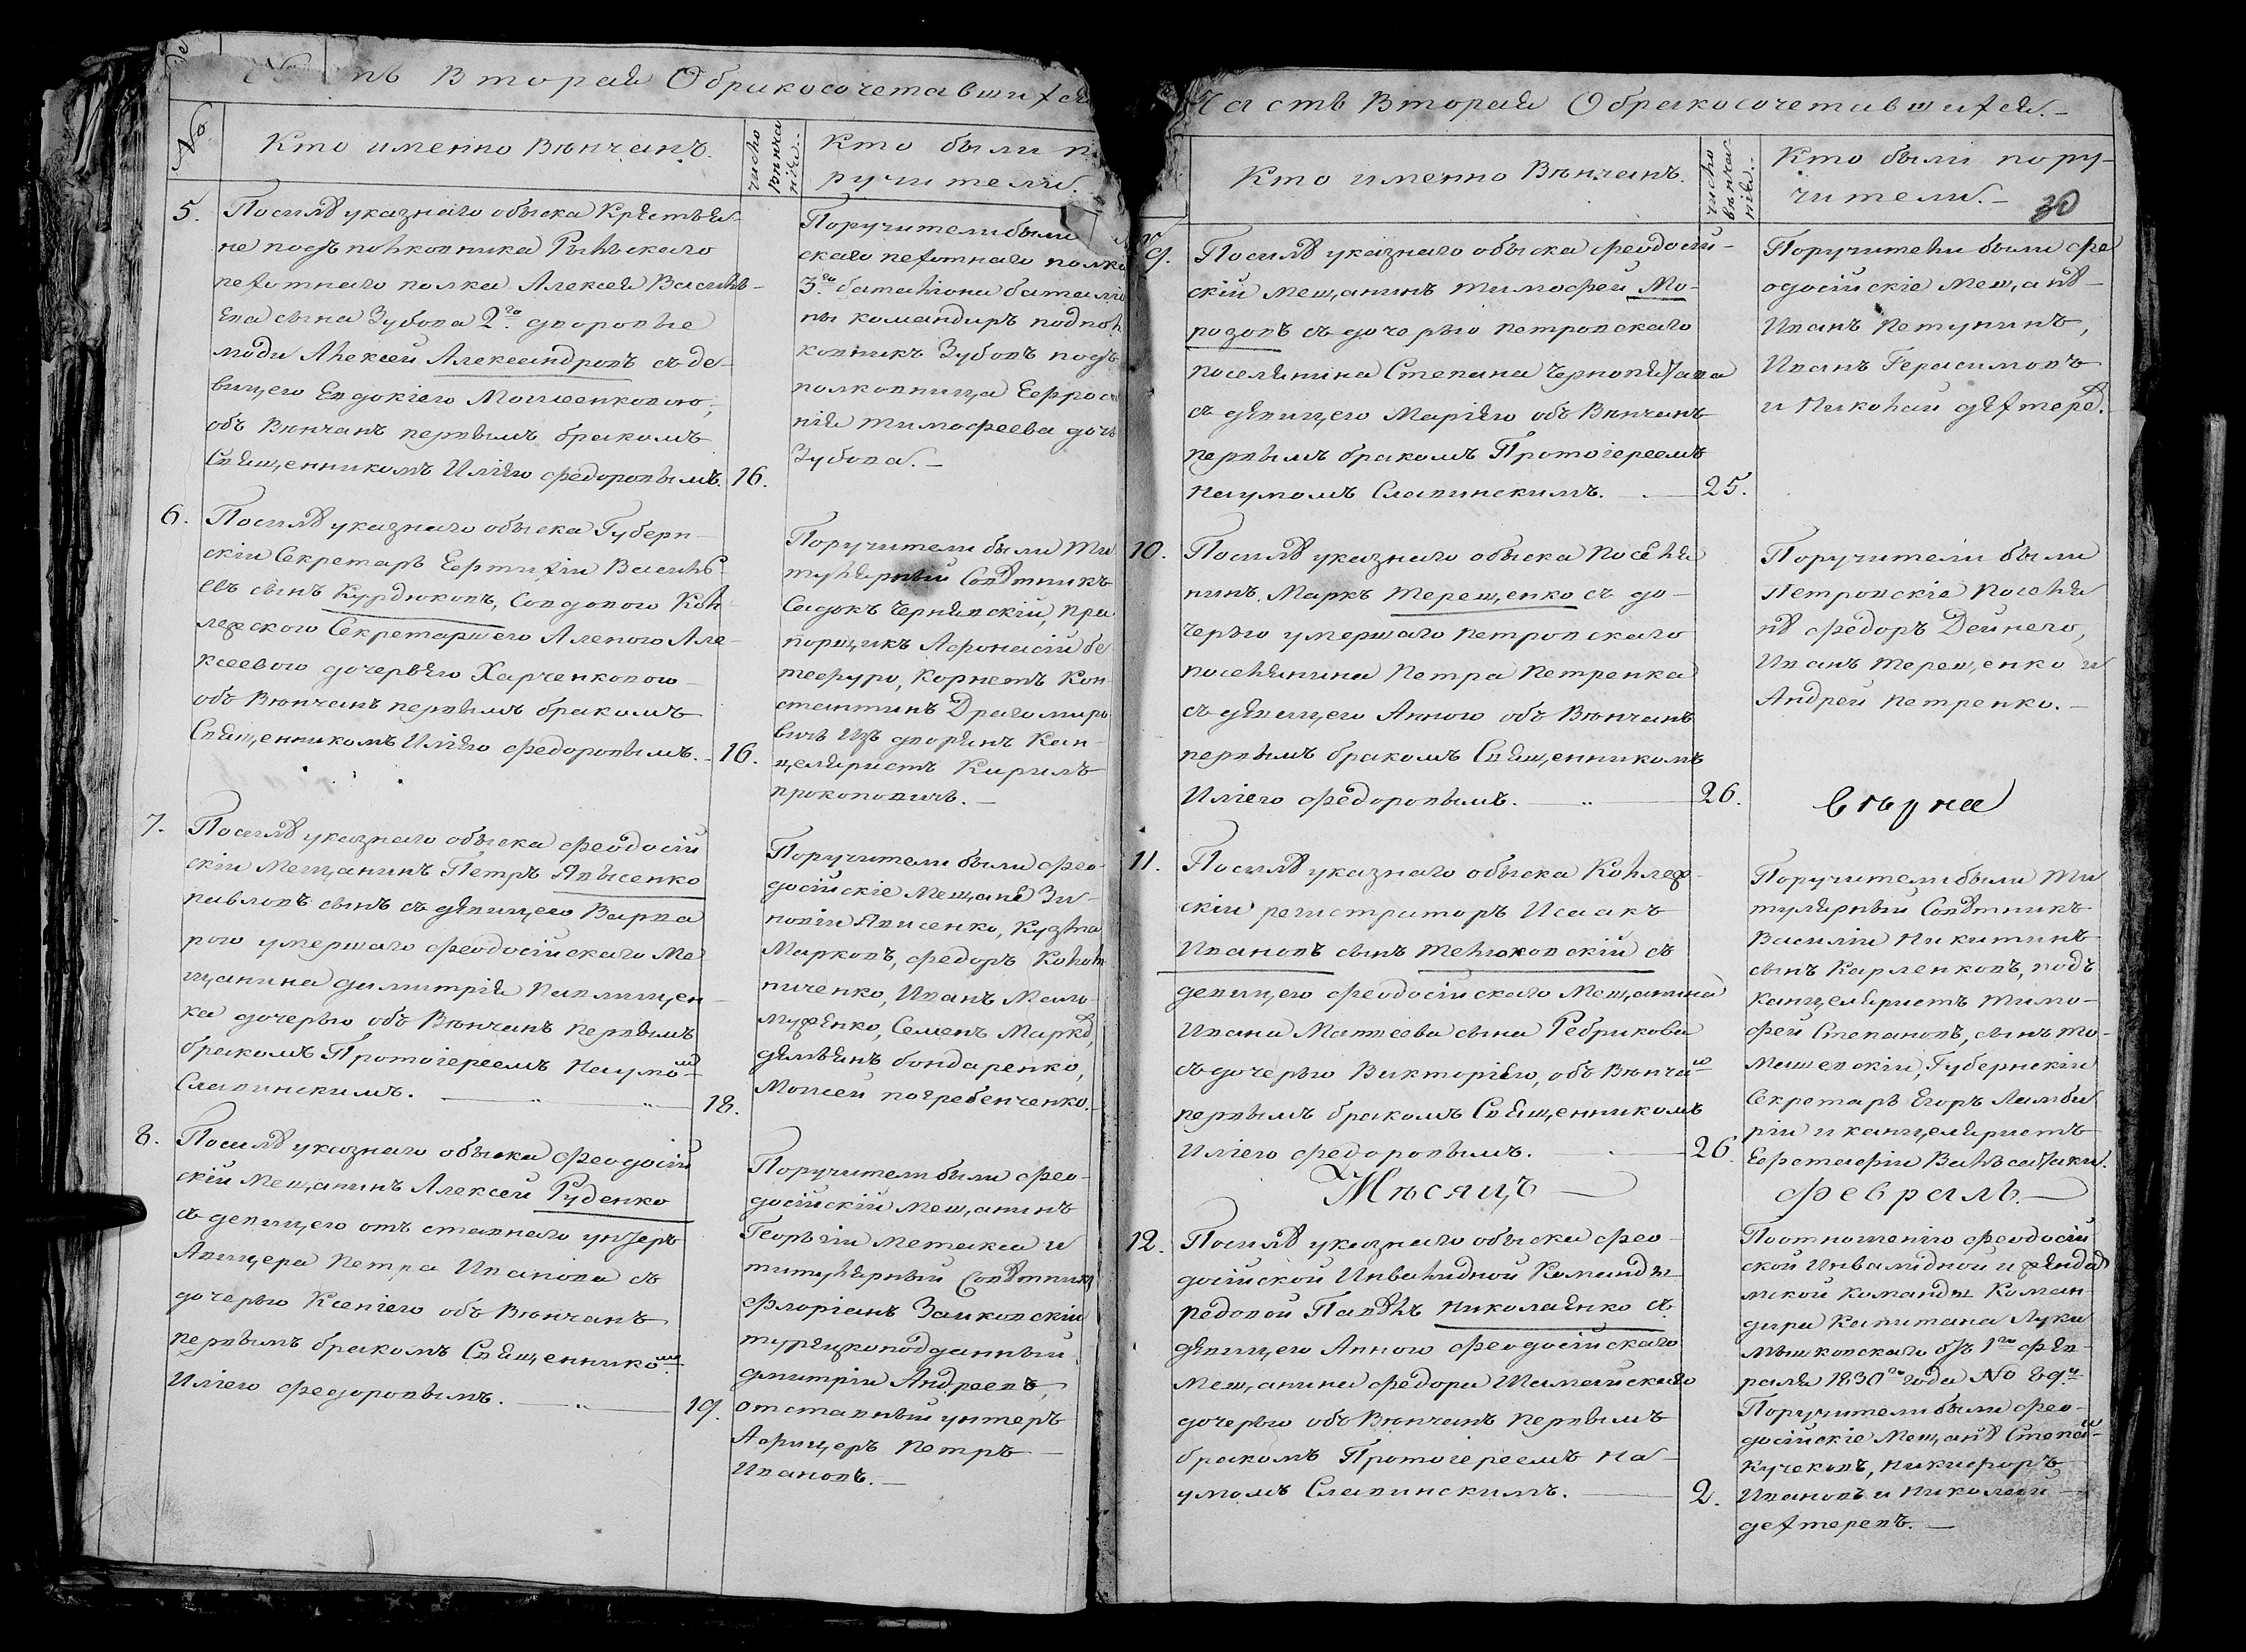 Вторая О бракосочетавшихся
№
Кто именно Вѣнчанъ.
число Вѣнчанія.
Кто были п
ручители.
5.
После указнаго обыска Крестья-
не подъ полковника Рыльскаго
пехотнаго полка Алексея Василь-
ева сына Зубова 2го дворовые
люди Алексей Александровъ съ де-
вицею Евдокіею Мошенковою,
обвѣнчанъ первымъ бракомъ
Священникомъ Иліею Федоровымъ.
16.
Поручители были
скаго пехотнаго полка
3го баталіона баталіо
ны командиръ подпол
ковникъ Зубовъ подъ
полковница Ефроси
нія Тимофеева дочь
Зубова.
6.
После указнаго обыска Губерн-
скій Секретарь Евтихій Василь-
евъ сынъ Курдюковъ, Совдовою Кол
лежскою Секретаршею Аленою Але-
ксеевою дочерью Харченковою
обвѣнчанъ первымъ бракомъ
Священникомъ Иліею Федоровымъ.
16.
Поручители были Ти
тулярный Советникъ
Садокъ Чернявскій, Пра
порщикъ Афонасій бе
Корнетъ Кон
стантинъ Драгомиро
вичъ Изъ дворянъ Кан-
целяристъ Кирилъ
Прокоповичъ.
7.
После указнаго обыска Феодосій
скій Мещанинъ Петръ Явысенко
павловъ сынъ съ девицею Варва
рою умершаго Феодосійскаго Ме
щанина Димитрія Павлищен-
ка дочерью обвѣнчанъ первымъ
бракомъ Протоіереемъ Наумом
Славинскимъ.
18.
Поручители были Фео-
досійскіе Мещане Зи-
новій Явисенко, Кузма
Марковъ, Федоръ Колом
ниченко, Иванъ Мало-
муженко, Семенъ Марков,
Демьянъ бондаренко,
Моисей погребенченко.
8.
После указнаго обыска Феодосій
скій Мещанинъ Алексей Руденко
съ девицею отъ ставнаго унтеръ
Авицера Петра Иванова съ
дочерью Ксеніею обвѣнчанъ
первымъ бракомъ Священником
Иліею Федоровымъ.
19.
Поручители были Фео-
досійскій Мещанинъ
Георгій Метакса и
титулярный Советникъ
Флоріанъ Заиковскій
турецкоподданный
Дмитрій Андреевъ,
отставный унтеръ
Афицеръ Петръ
Ивановъ.
Часть Вторая О бракосочетавшихся.
Кто именно Вѣнчанъ.
число вѣнчанія.
Кто были пору-
чители.
30
9.
После указнаго обыска Феодосій-
скій Мещанинъ Тимофей Мо-
розовъ съ дочерью Петровскаго
поселянина Степана
съ девицею Маріею обвѣнчанъ
первымъ бракомъ Протоіереемъ
Наумомъ Славинскимъ.
25.
Поручители были Фе
одосійскіе Мещане
Иванъ Петунинъ,
Иванъ Герасимовъ
и Николай Дехтерев.
10.
После указнаго обыска поселя
нинъ Маркъ Терещенко съ до-
черью умершаго Петровскаго
поселянина Петра Петренка
съ девицею Анною обвѣнчанъ
первымъ бракомъ Священникомъ
Иліею Федоровымъ.
26.
Поручители были
Петровскіе Поселя
не Федоръ Дейнего,
Иванъ Терещенко и
Андрей Петренко.
11.
После указнаго обыска Коллеж-
скій регистраторъ Исаакъ
Ивановъ сынъ Телюковскій съ
девицею Феодосійскаго Мещанина
Ивана Матвеева сына Ребрикова
съ дочерью Викторіею, обвѣнчан
первымъ бракомъ Священникомъ
Иліею Федоровымъ.
26.
Поручители были Ти
тулярный Советникъ
Василій Никитинъ
сынъ Карленковъ, подъ
канцеляристъ Тимо-
фей Степановъ, сынъ То-
машевскій, Губернскій
Секретарь Егоръ Ламби
рій и канцеляристъ
Евстафій
Мѣсяцъ
Февраль
12.
После указнаго обыска Фео-
досійской Инвалидной Команды
редовой Павелъ Николаенко съ
девицею Анною Феодосійскаго
Мещанина Федора Шамайскаго
дочерью обвѣнчанъ первымъ
бракомъ Протоіереемъ На-
умомъ Славинскимъ.
2.
По отношенію Феодосій
ской Инвалидной и жендар
мской Команды Коман-
дира Капитана Луки
Мышковскаго отъ 1го Фев-
раля 1830го года № 89м
Поручители были Фео-
досійскіе Мещане Степан
Кучековъ, Никифоръ
Ивановъ и Николай
Дехтеревъ.